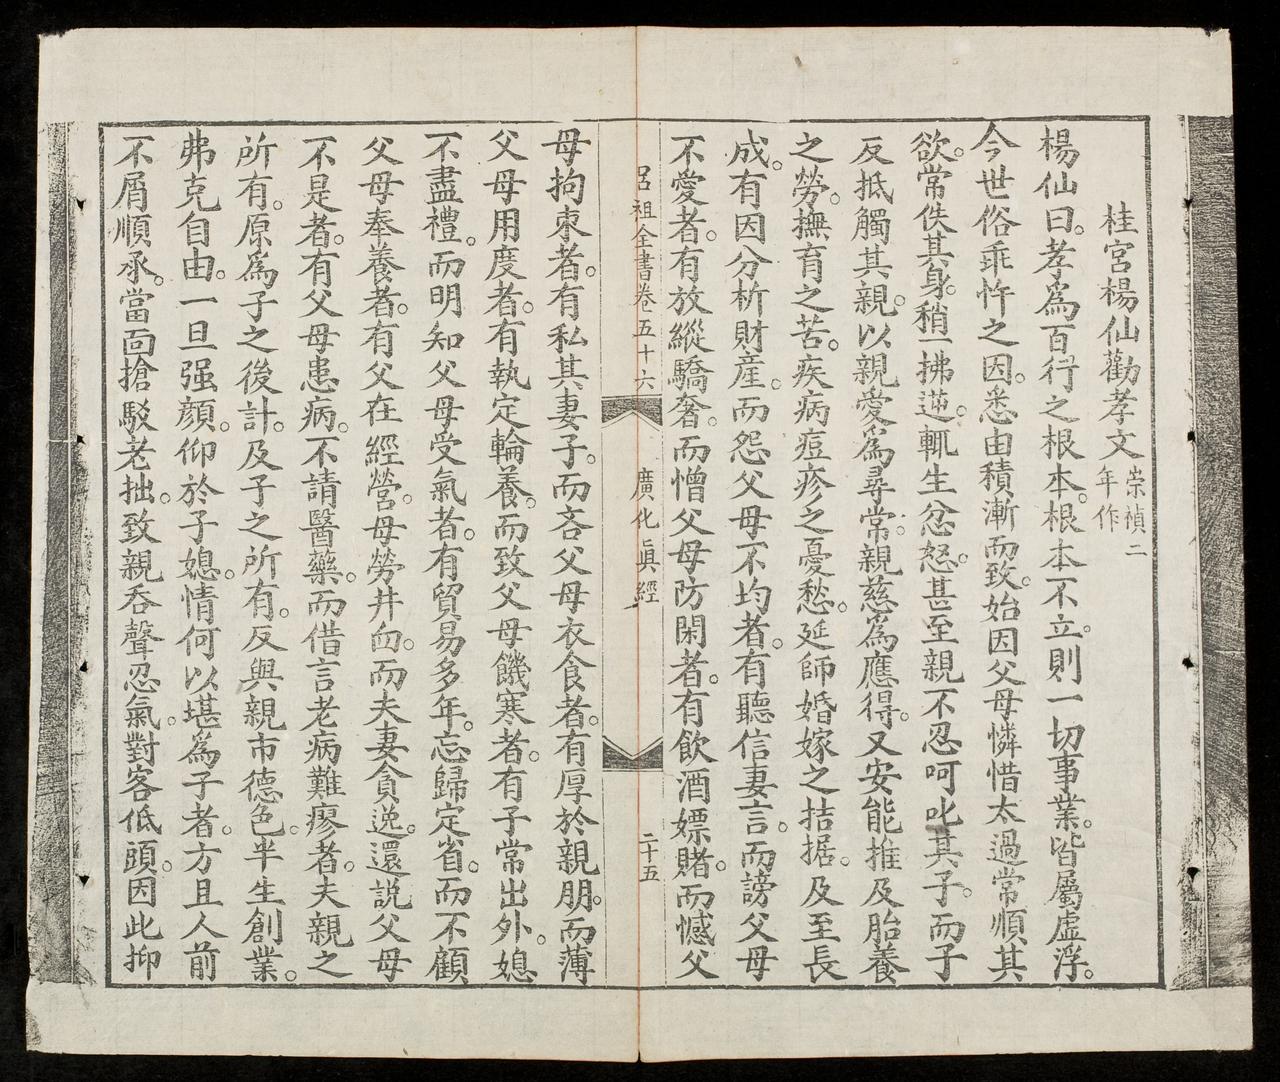 桂宮楊仙勸孝文崇禎二年作
楊仙曰。孝爲百行之根本。根本不立。則一切事業。皆屬虛浮。
今世俗乖忤之因。悉由積漸而致。始因父母憐惜太過。常順其
欲。常佚其身。稍一拂逆。輒生忿怒。甚至親不忍呵叱其子。而子
反抵觸其親。以親愛爲尋常。親慈爲應得。又安能推及胎養
之勞。撫育之苦。疾病痘疹之憂愁。延師婚嫁之拮据。及至長
成。有因分析財產。而怨父母不均者。有聽信妻言。而謗父母
不愛者。有放縱驕奢。而憎父母防閑者。有飲酒嫖賭。而憾父
呂祖全書卷五十六
廣化眞經
二十五
母拘束者。有私其妻子。而吝父母衣食者。有厚於親朋。而薄
父母用度者。有執定輪養。而致父母饑寒者。有子常出外。媳
不盡禮。而明知父母受氣者。有貿易多年。忘歸定省。而不顧
父母奉養者。有父在經營。母勞井臼。而夫妻貪逸。還說父母
不是者。有父母患病。不請醫藥。而借言老病難瘳者。夫親之
所有。原爲子之後計。及子之所有。反與親市德色。半生創業。
弗克自由。一旦强顏。仰於子媳。情何以堪。爲子者。方且人前
不屑順承。當面搶駁老拙。致親呑聲忍氣。對客低頭。因此抑